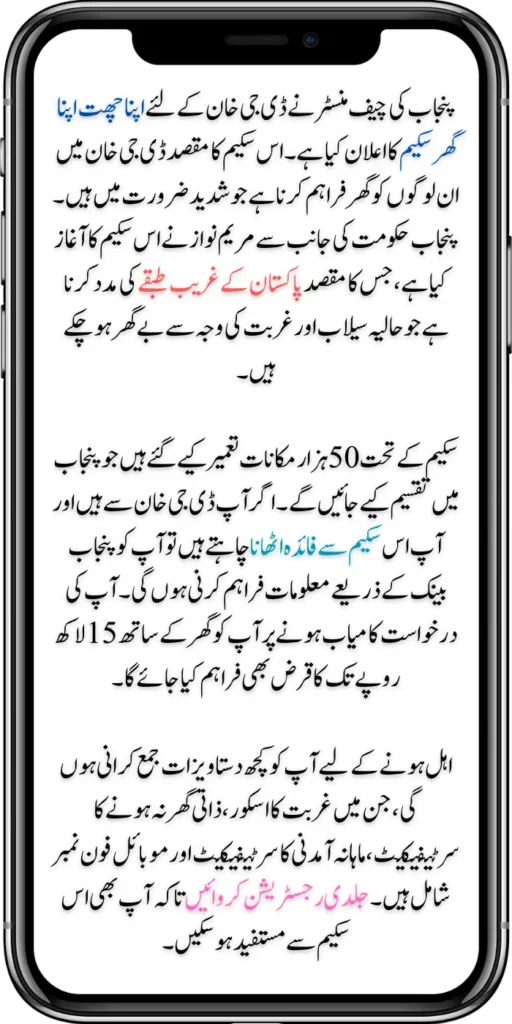 پنجاب کی چیف منسٹر نے ڈی جی خان کے لئے اپنا چھت اپنا
گھر سکیم کا اعلان کیا ہے۔ اس سکیم کا مقصد ڈی جی خان میں
ان لوگوں کو گھر فراہم کرنا ہے جو شدید ضرورت میں ہیں۔
پنجاب حکومت کی جانب سے مریم نواز نے اس سکیم کا آغاز
کیا ہے، جس کا مقصد پاکستان کے غریب طبقے کی مدد کرنا
ہے جو حالیہ سیلاب اور غربت کی وجہ سے بے گھر ہو چکے
ہیں۔
سکیم کے تحت 50 ہزار مکانات تعمیر کیے گئے ہیں جو پنجاب
میں تقسیم کیے جائیں گے۔ اگر آپ ڈی جی خان سے ہیں اور
آپ اس سکیم سے فائدہ اٹھانا چاہتے ہیں تو آپ کو پنجاب
بینک کے ذریعے معلومات فراہم کرنی ہوں گی۔ آپ کی
درخواست کامیاب ہونے پر آپ کو گھر کے ساتھ 15 لاکھ
روپے تک کا قرض بھی فراہم کیا جائے گا۔
اہل ہونے کے لیے آپ کو کچھ دستاویزات جمع کرانی ہوں
گی، جن میں غربت کا اسکور، ذاتی گھر نہ ہونے کا
سرٹیفیکیٹ، ماہانہ آمدنی کا سرٹیفیکیٹ اور موبائل فون نمبر
شامل ہیں۔ جلدی رجسٹریشن کروائیں تاکہ آپ بھی اس
سکیم سے مستفید ہو سکیں۔